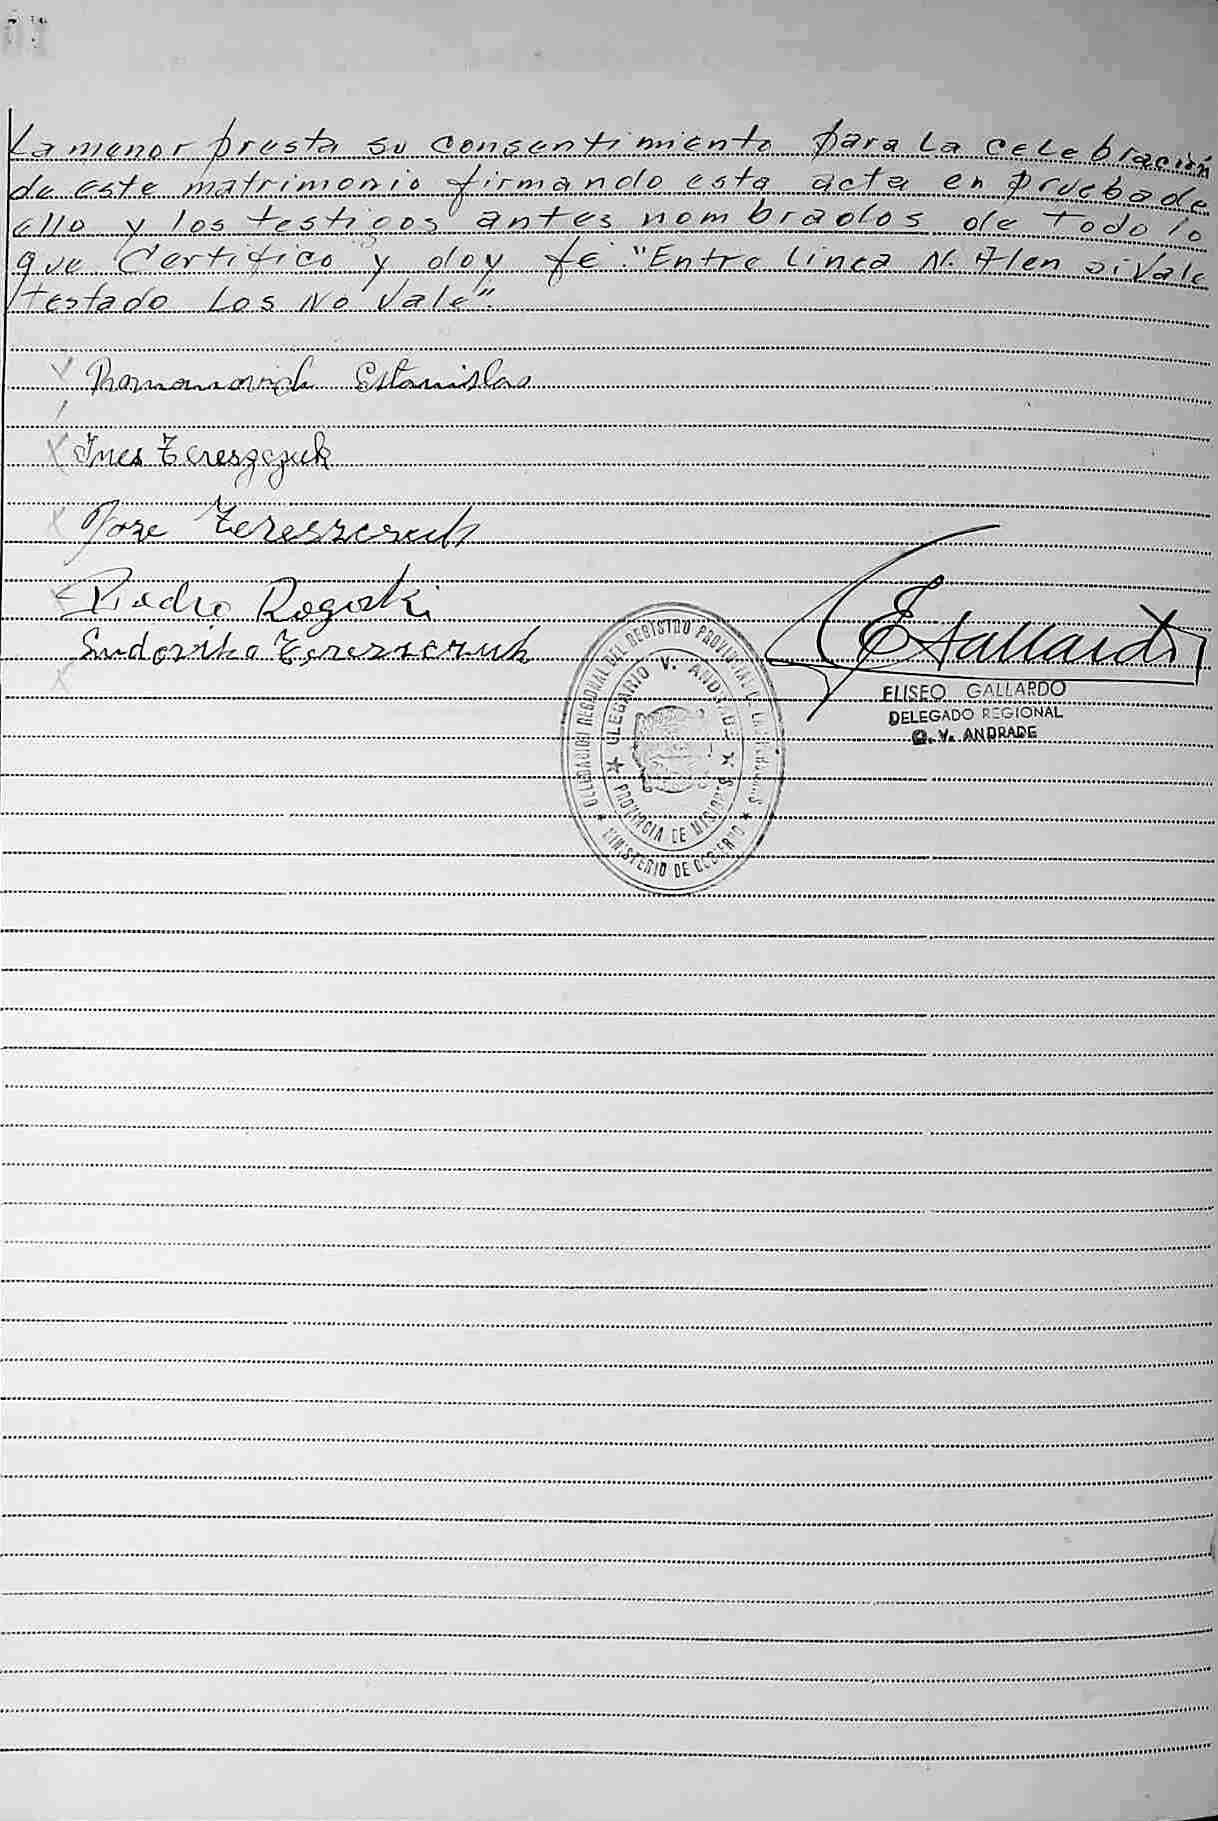 La menor presta su consentimiento para La celebración
de este matrimonio firmando esta acta en prueba de
ello y los testigos antes nombrados de todo lo
que Certifico y doy fé "Entre linea N. Alen si Vale
testado Los No Vale".
Romanovich Estanislao
Ines Tereszczuk
Jose Tereszczuk
Piedro Rogoski
Ludovika Tereszczuk
E Gallardo
ELISEO GALLARDO
DELEGADO REGIONAL
O. V. ANDRADE
DELEGACION REGIONAL DEL REGISTRO PROVINCIAL DE LAS PERSONAS
OLEGARIO V. ANDRADE
PROVINCIA DE MISIONES
MINISTERIO DE GOBIERNO